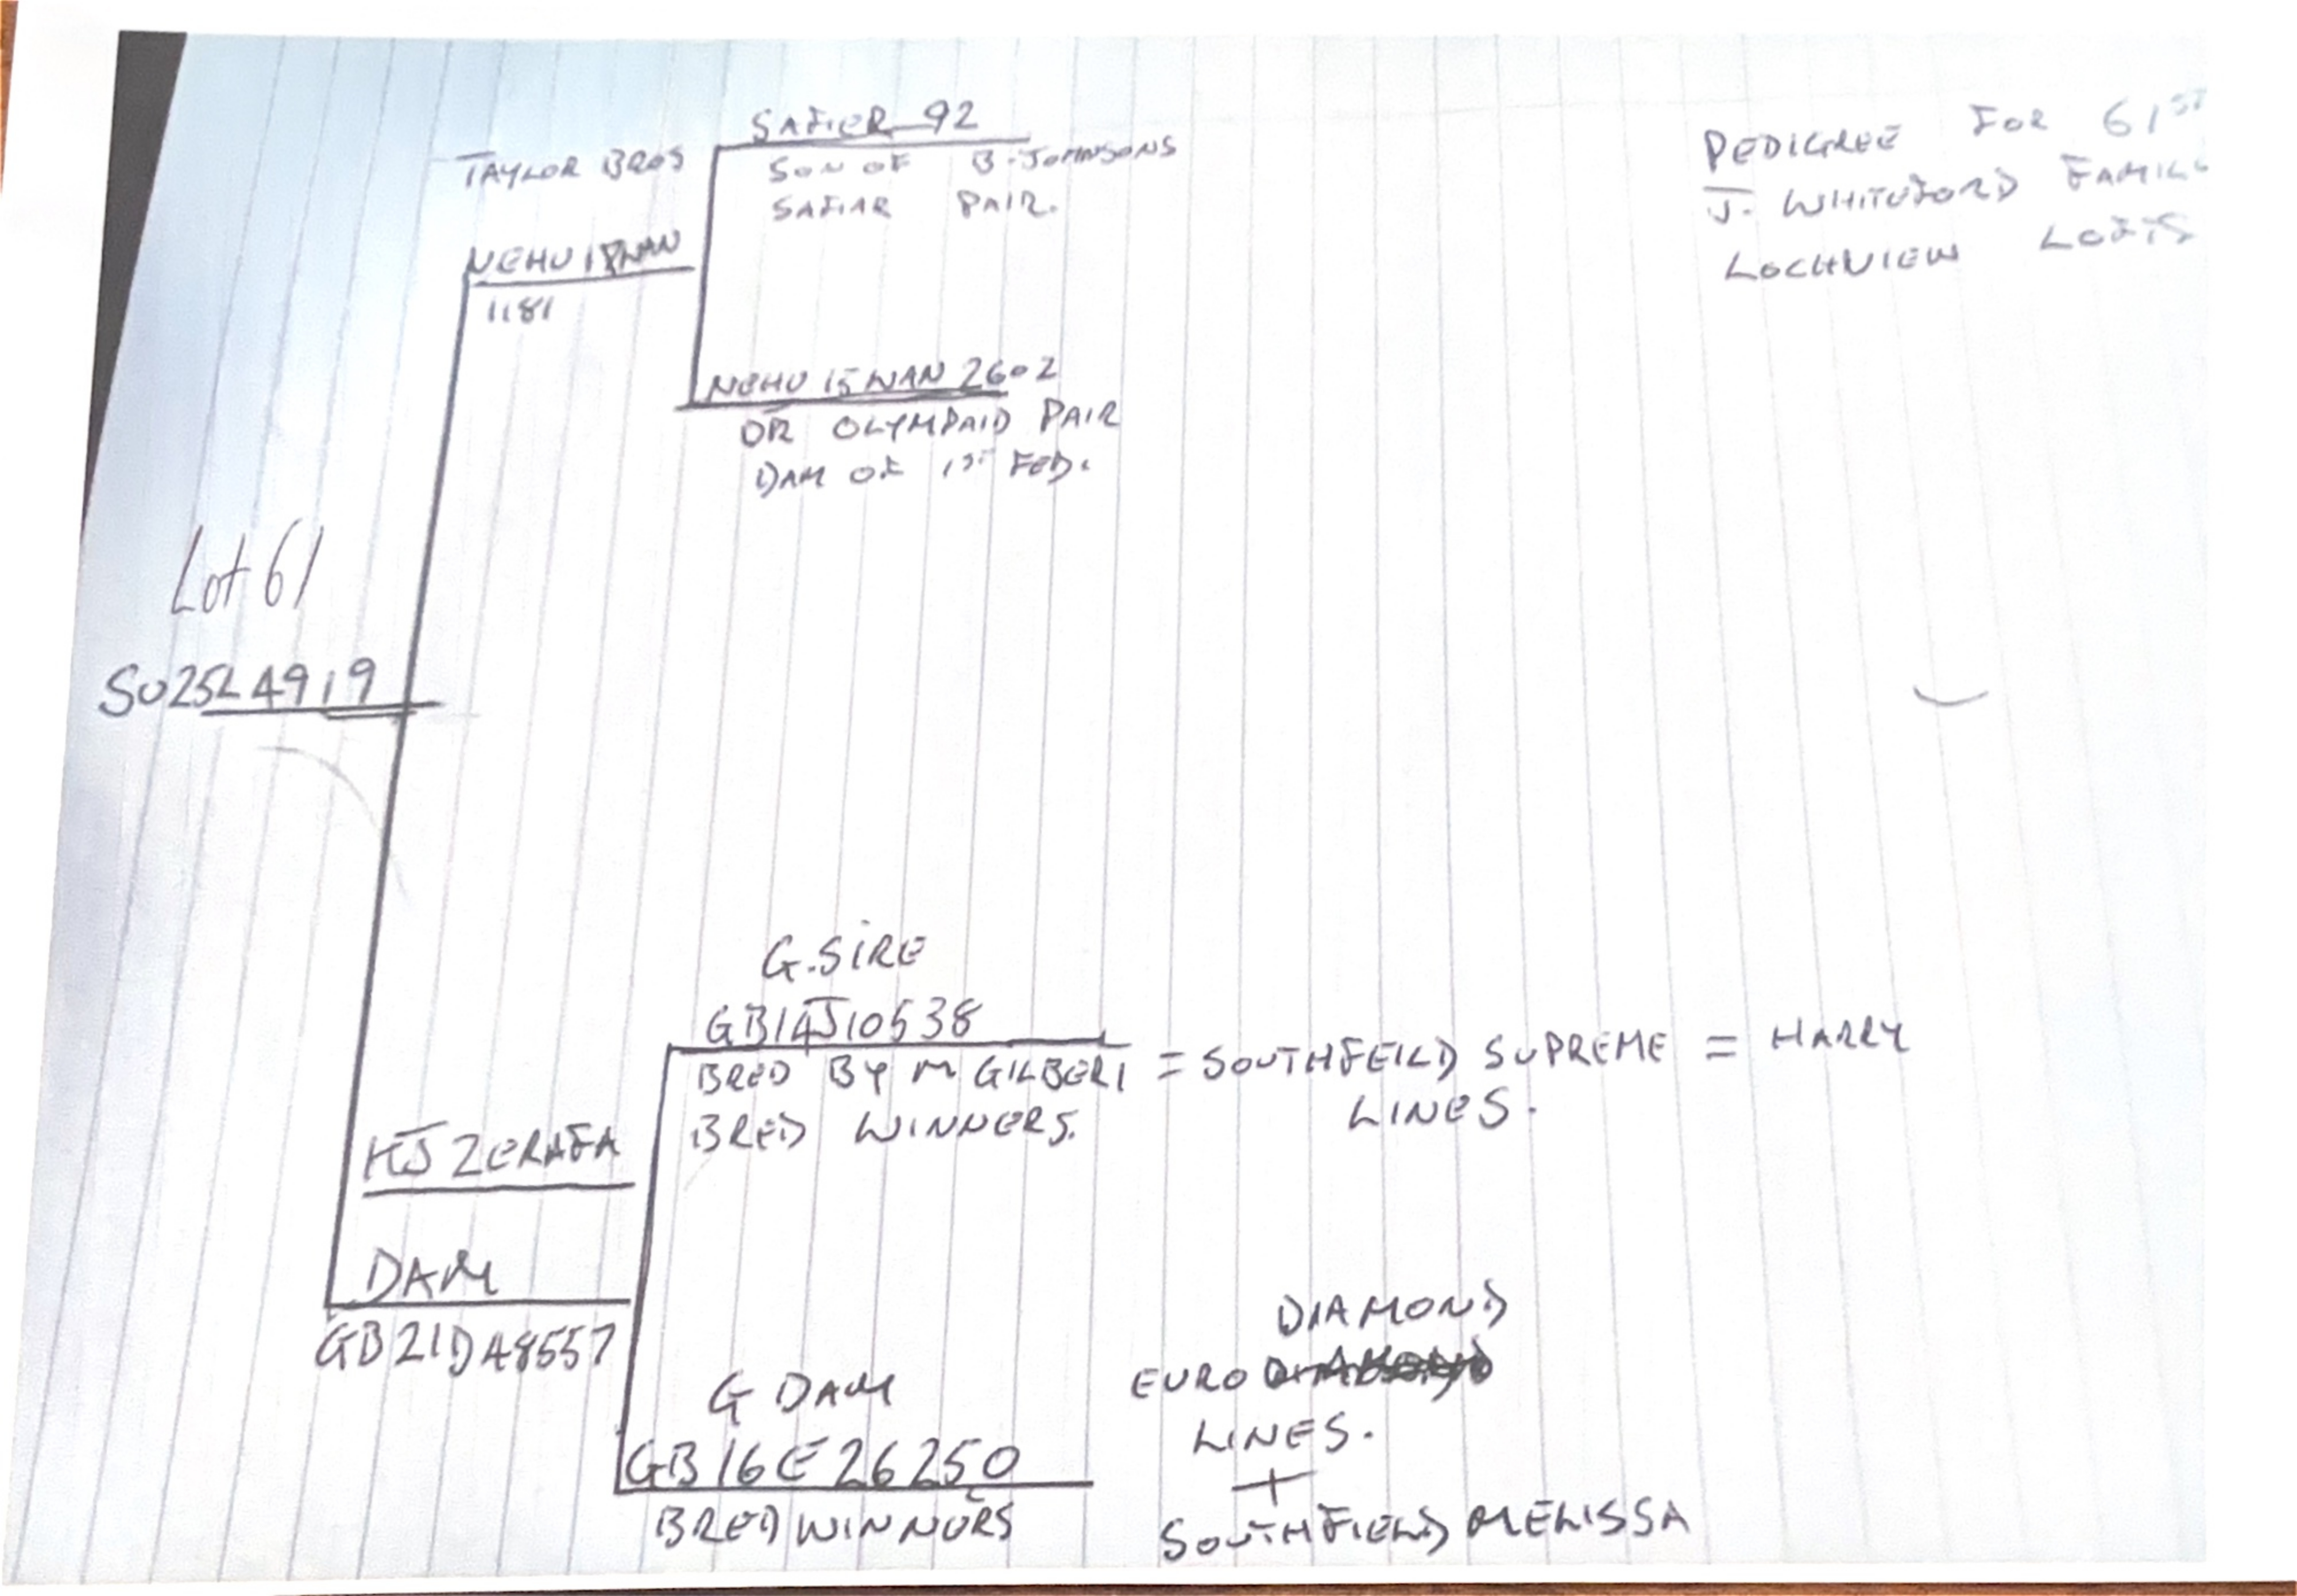 PEDIGREE FOR 61ST
J. WHITEFORD FAMILY
LOCHVIEW LOFTS
SAFIER 92
TAYLOR BROS
SON OF B. JOHNSONS
SAFIAR PAIR.
NEHU 18 WAN
1181
NEHU 15 WAN 2602
DR OLYMPAID PAIR
DAM OF 1ST FED.
Lot 61
SU25L4919
G.SIRE
GB14J10538
BRED BY M GILBERT = SOUTHFEILD SUPREME = HARRY
LINES.
BRED WINNERS.
KJ ZERAFA
DAM
GB21D48557
DIAMOND
G DAM
EURO
LINES.
GB16E26250
+
BRED WINNERS
SOUTHFIELD MELISSA